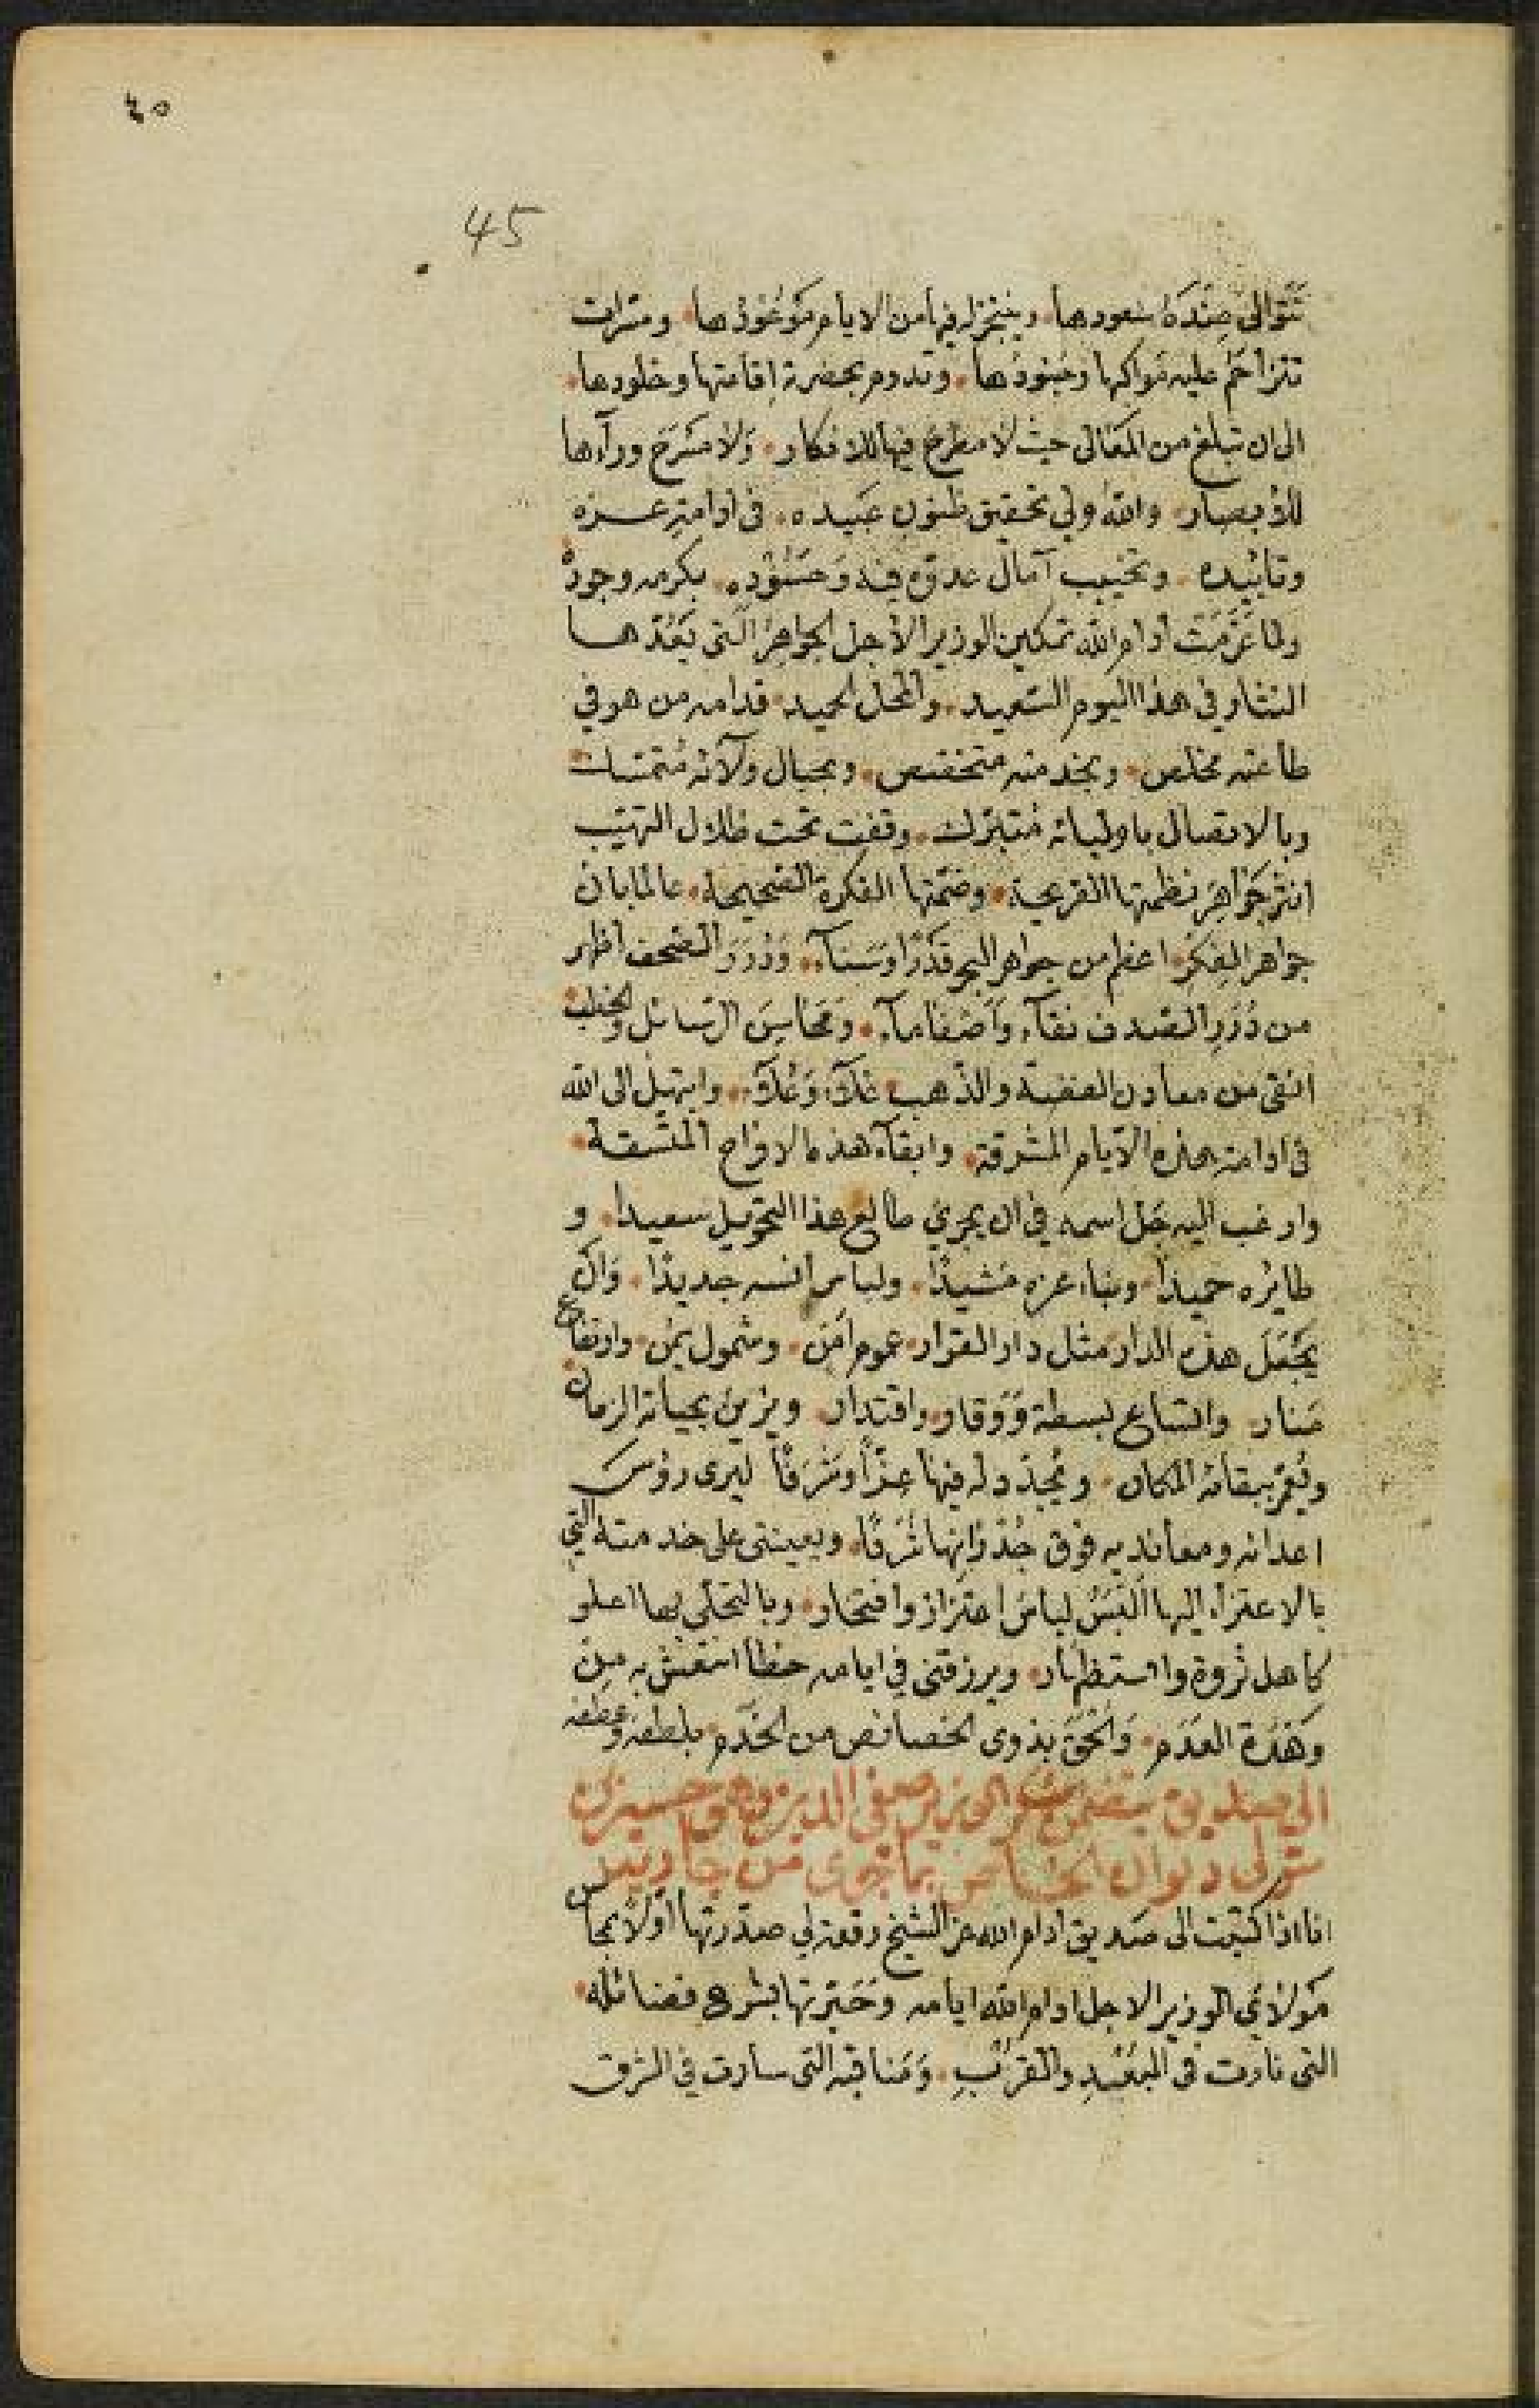 ٤٥
45
تتوالى عنده سعودها وينجز له فيها من الايام موعودها ومسرات
تتزاحم عليه مواكبها وجنودها وتدوم بحضرته اقامتها وخلودها
الى ان تبلغ من المعالى حيث لا مطرح فيها للافكار ولا مسرح ورآءها
للأبصار والله ولي تحقيق ظنون عبيده في ادامة عزه
وتاييده وتخييب آمال عدوه فيه وحسوده بكرمه وجوده
ولما عزمت ادام الله تمكين الوزير الأجل الجواهر التي يعدها
النثار في هذا اليوم السعيد والمحل الحميد قدامه من هو في
طاعته مخلص وبخدمته متخصص وبحبال ولآئه متمسك
وبالاتصال باوليائه متبرك وقفت تحت ظلال التهيب
انثر جواهر نظمتها القريحة وضمتها الفكرة الصحيحة عالما بان
جواهر الفكر اعظم من جواهر البحر قدرا وسنآء ودرر الصحف اظهر
من درر الصدف نقآء واصفا مآء ومحاسن الرسائل والخطب
انقى من معادن الفضة والذهب غلآء وعلآء وابتهل الى الله
في ادامة هذه الايام المشرقة وابقآء هذه الافراح المتسقة
وارغب اليه جل اسمه في ان يجري طالع هذا التحويل سعيدا و
طايره حميدا وبناء عزه مشيدا ولباس انسه جديدا وان
يجعل هذه الدار مثل دار القرار عموم امن وشمول يمن وارتفاع
منار واتساع بسطة ووقار واقتدار ويزين بحياته الزمان
ويعمر ببقائه المكان ويجدد له فيها عزا وشرفا ليرى رؤس
اعدائه ومعانديه فوق جدرانها شرفا ويعينني على خدمته التي
بالاعتزاء اليها البس لباس اعتزاز وافتخار وبالتحلي بها اعلو
كاهل ثروة واستظهار ويرزقني في ايامه حظا انتعش به من
وهدة العدم والحق بذوى الخصائص من الخدم بلطفه وعطفه
الى صديق يتضمن شكر الوزير صفى الدين وهو حينئذ
متولى ديوان الخاص بما جرى من
انا اذا كتبت الى صديق ادام الله عز الشيخ رقعة لي صدرتها اولا بمحاسن
مولاي الوزير الاجل ادام الله ايامه وحبرتها بشرح فضائله
التي نارت في البعيد والقريب ومناقبه التي سارت في الشرق